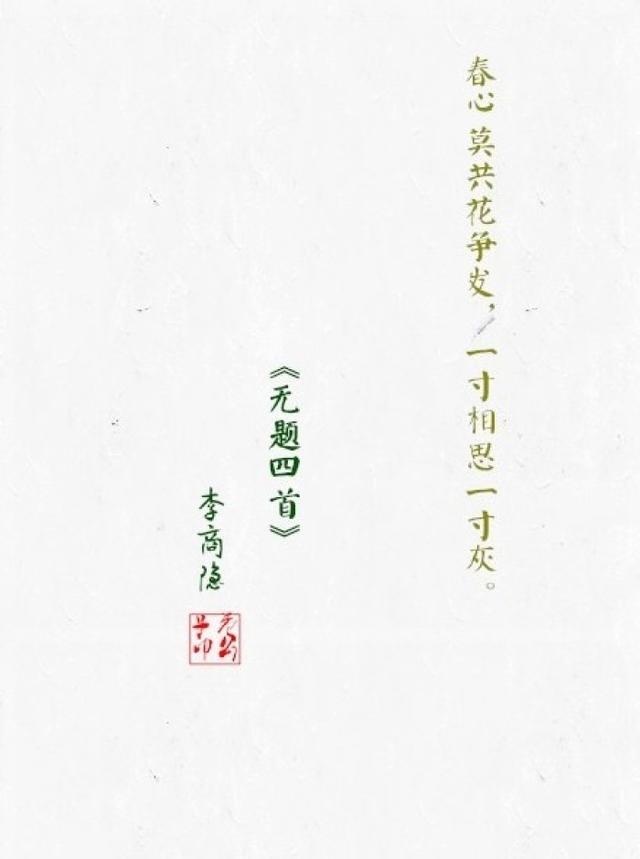 春心莫共花争发，一寸相思一寸灰。
《无题四首》
李商隐